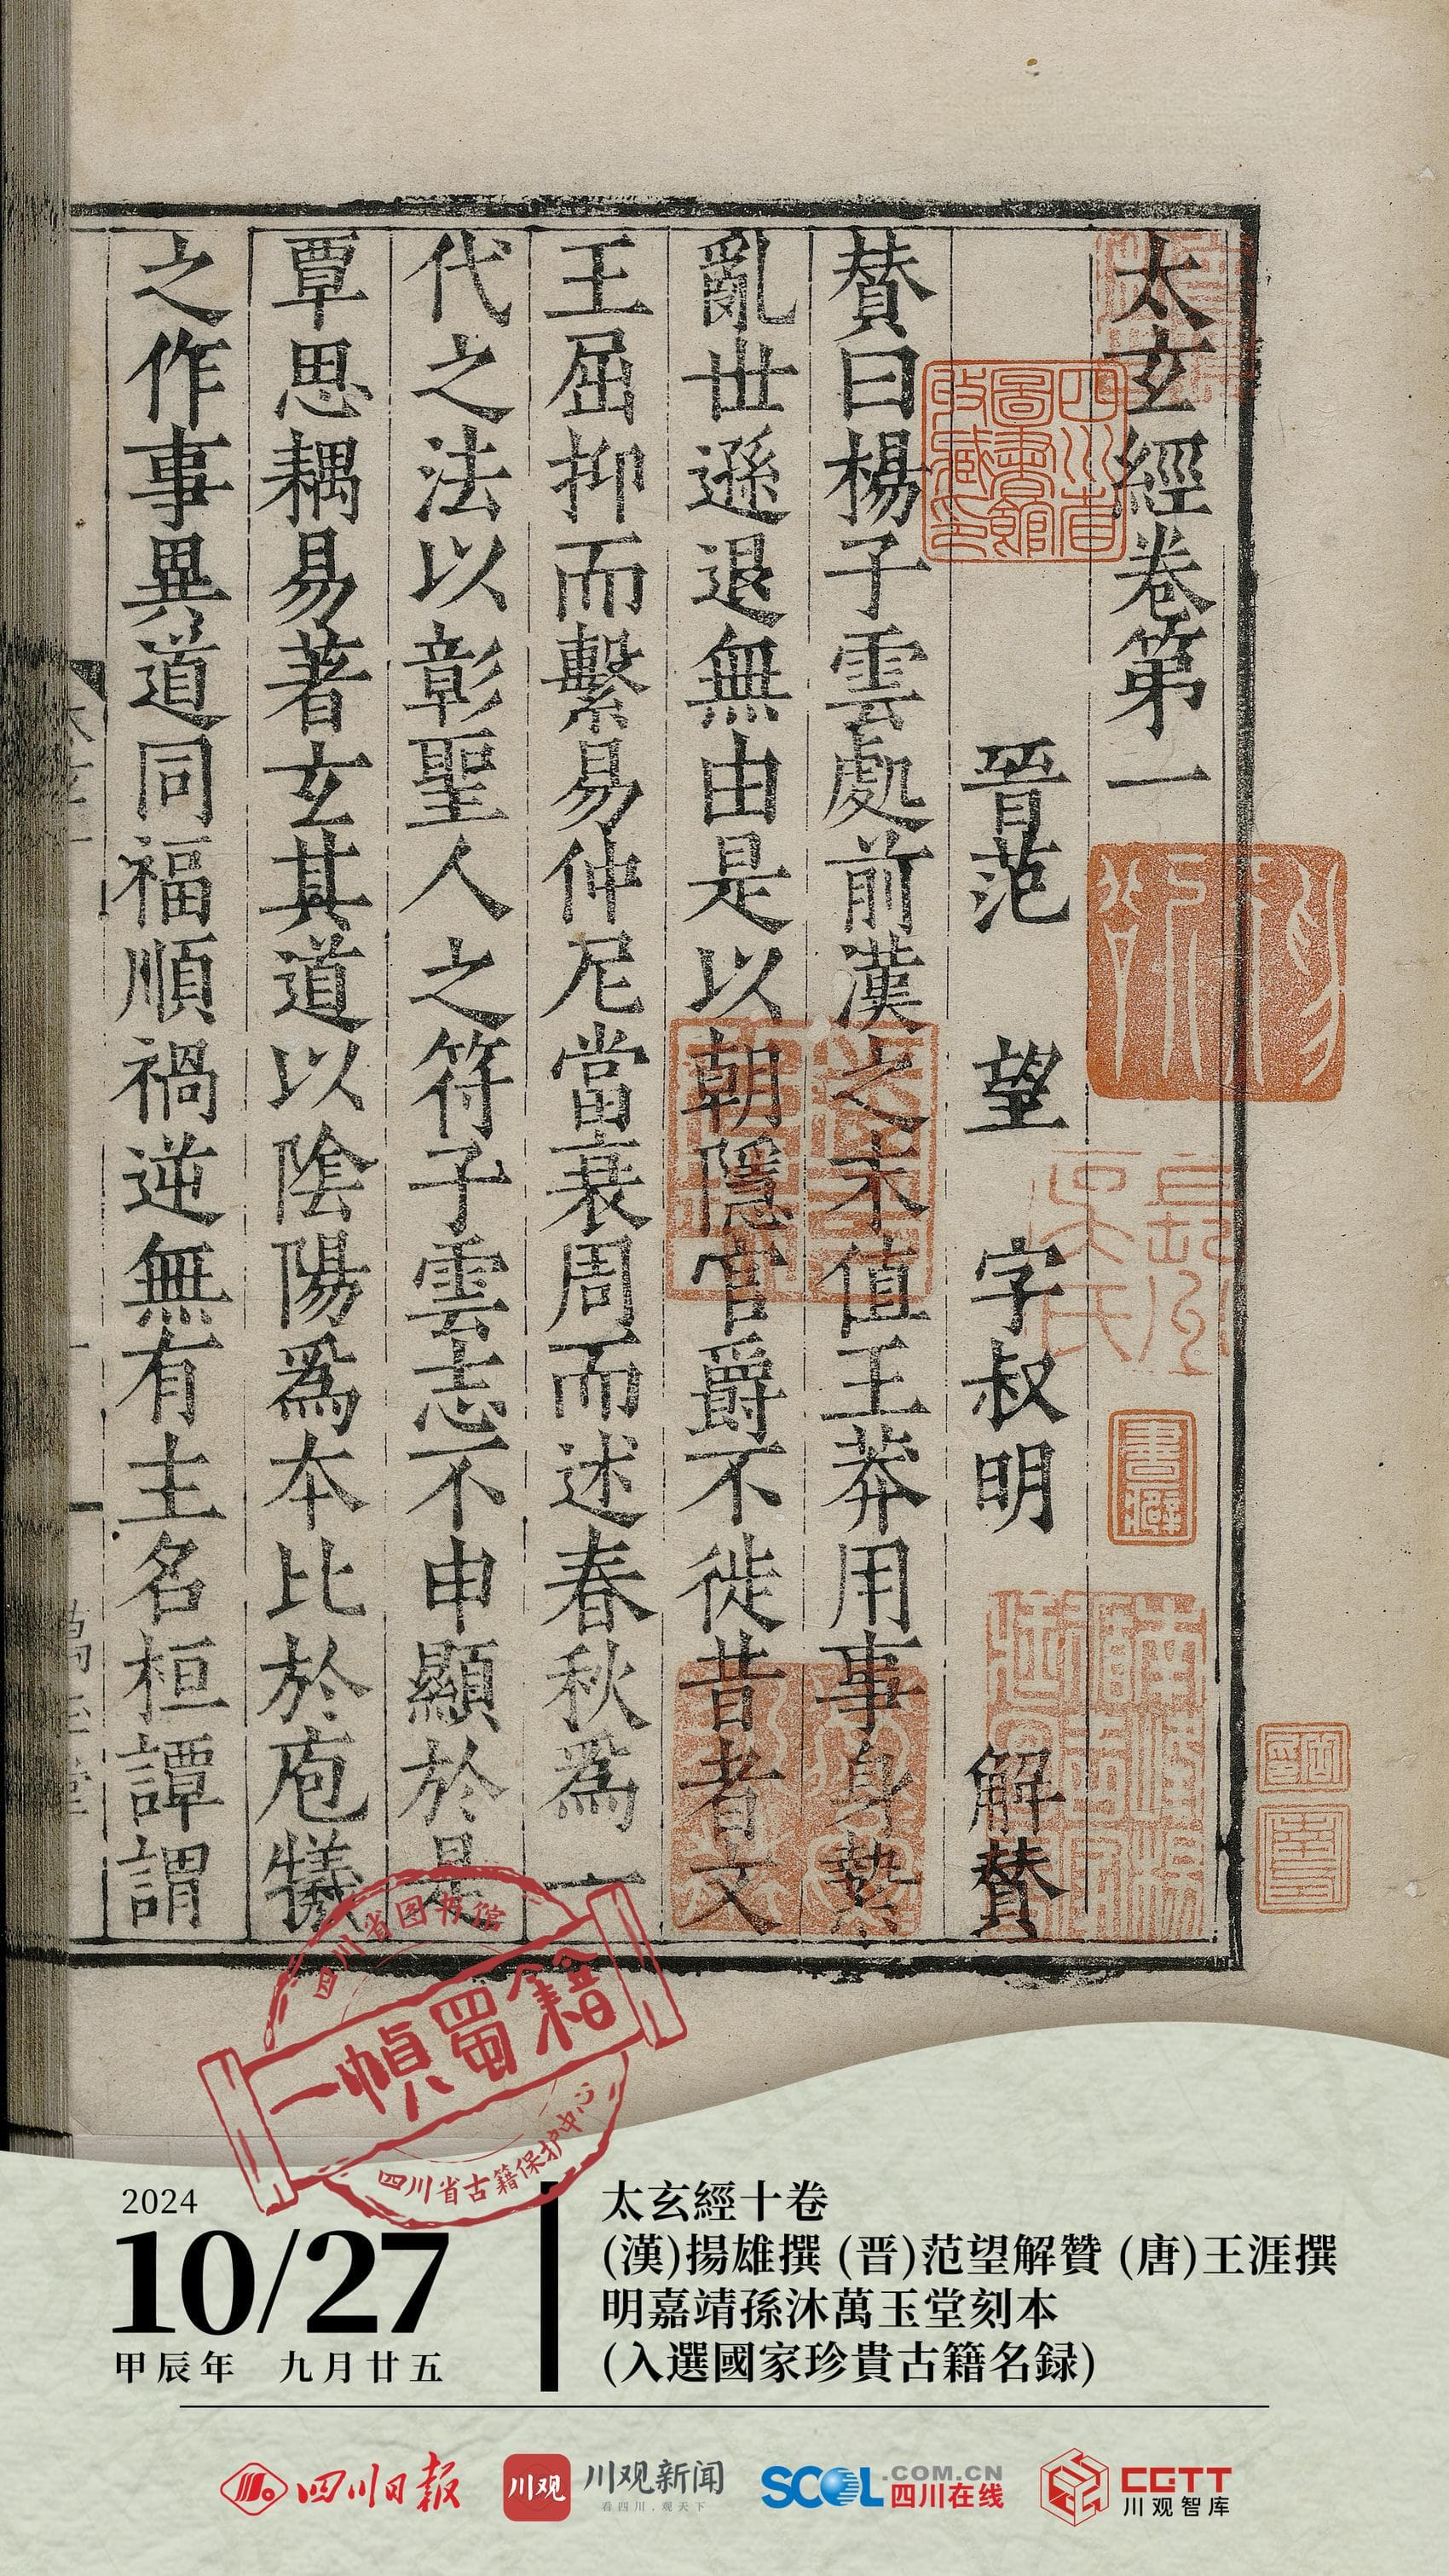 太玄經卷第一
晉范 望 字叔明 解賛
賛曰楊子雲處前漢之末值王莽用事身縶
亂世遜退無由是以朝隱官爵不徙昔者文
王屈抑而繫易仲尼當衰周而述春秋爲一
代之法以彰聖人之符子雲志不申顯於是
覃思耦易著玄其道以陰陽爲本比於庖犧
之作事異道同福順禍逆無有主名桓譚謂
四川省
圖書館
收藏印
書癖
四川省图书馆
一幀蜀籍
四川省古籍保护中心
2024
10/27
甲辰年 九月廿五
太玄經十卷
(漢)揚雄撰 (晋)范望解贊 (唐)王涯撰
明嘉靖孫沐萬玉堂刻本
(入選國家珍貴古籍名録)
四川日报
川观
川观新闻
看四川,观天下
SCOL.COM.CN
四川在线
CGTT
川观智库